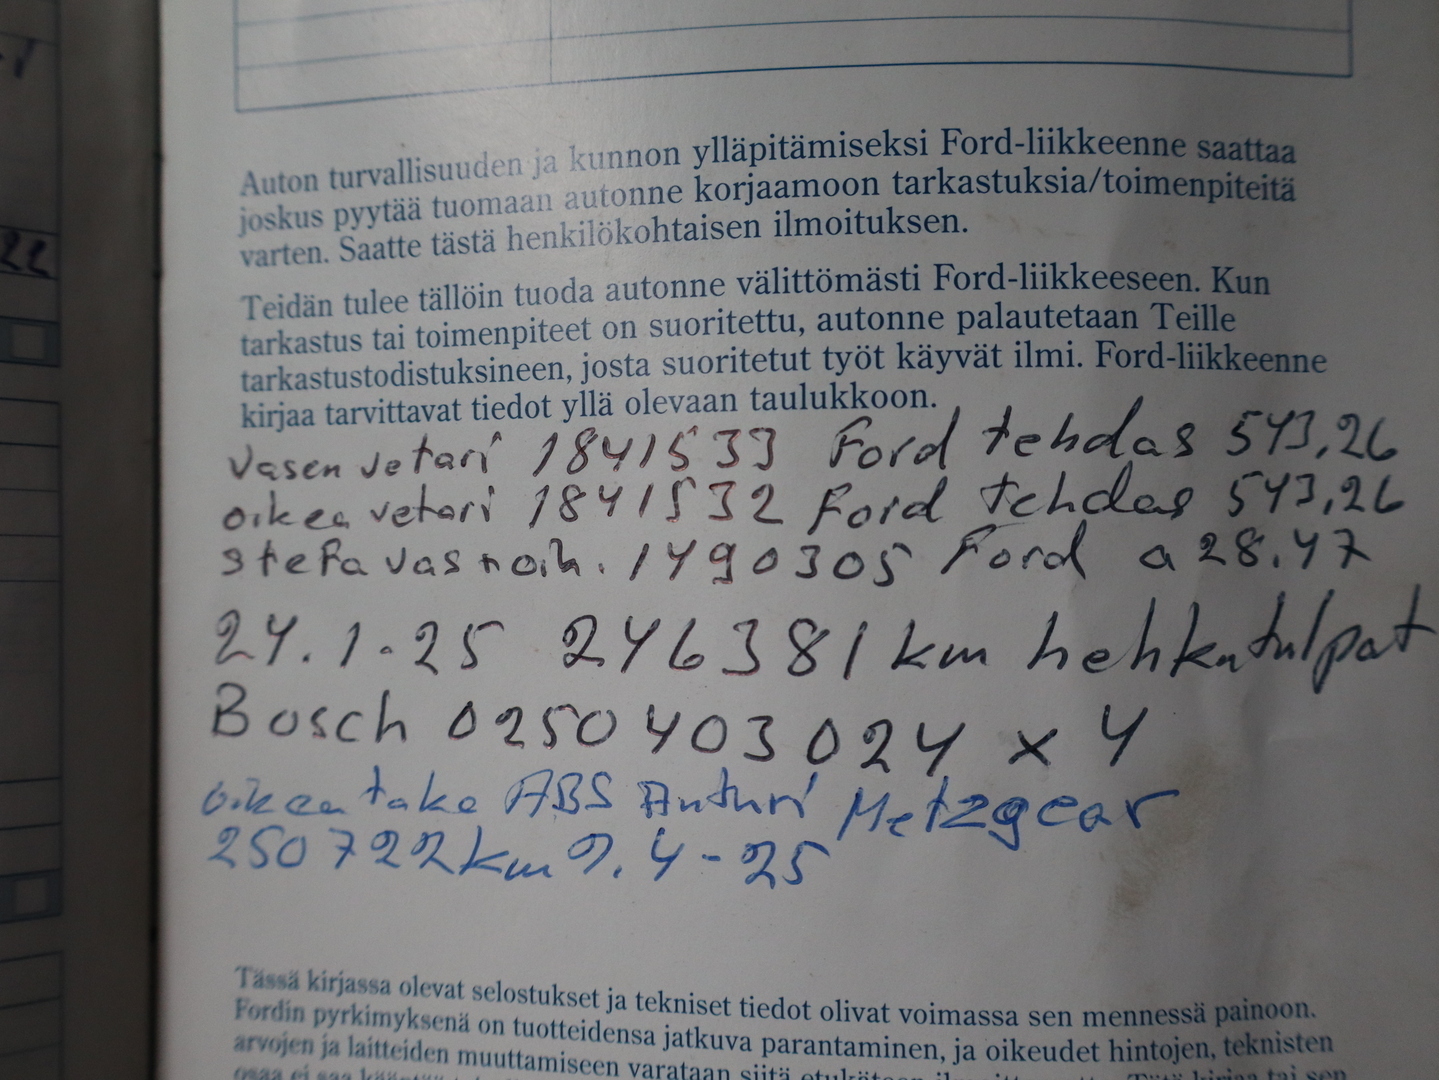 22
Auton turvallisuuden ja kunnon ylläpitämiseksi Ford-liikkeenne saattaa
joskus pyytää tuomaan autonne korjaamoon tarkastuksia/toimenpiteitä
varten. Saatte tästä henkilökohtaisen ilmoituksen.
Teidän tulee tällöin tuoda autonne välittömästi Ford-liikkeeseen. Kun
tarkastus tai toimenpiteet on suoritettu, autonne palautetaan Teille
tarkastustodistuksineen, josta suoritetut työt käyvät ilmi. Ford-liikkeenne
kirjaa tarvittavat tiedot yllä olevaan taulukkoon.
Vasen vetari 1841533 Ford tehdas 543,26
oikea vetari 1841532 Ford tehdas 543,26
stefa vas + oik. 1490305 Ford a 28.47
24.1.25 246381 km hehkutulpat
Bosch 0250403024 x 4
oikea taka ABS Anturi Metzgear
250722 km 9.4-25
Tässä kirjassa olevat selostukset ja tekniset tiedot olivat voimassa sen mennessä painoon.
Fordin pyrkimyksenä on tuotteidensa jatkuva parantaminen, ja oikeudet hintojen, teknisten
arvojen ja laitteiden muuttamiseen varataan siitä